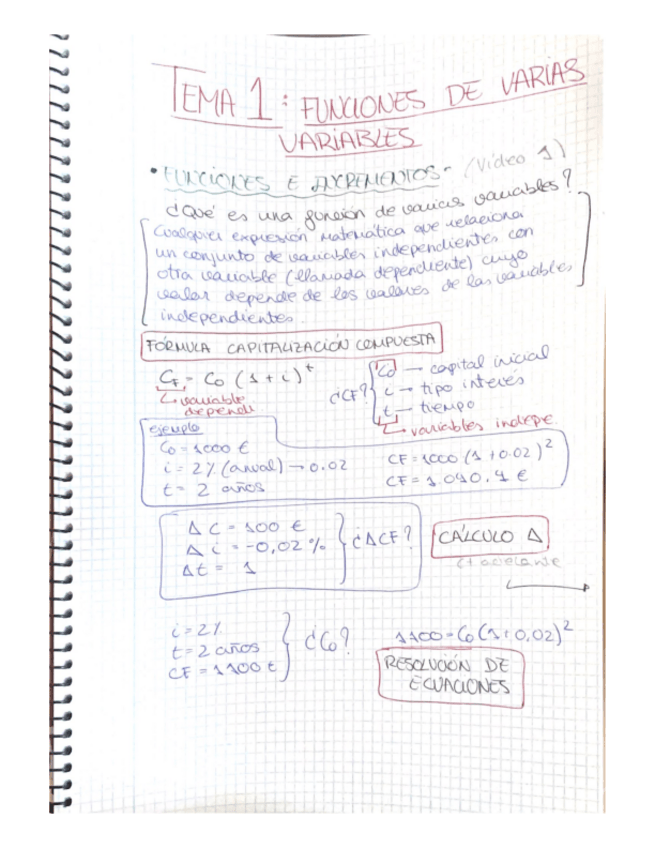 TEMA 1: FUNCIONES DE VARIAS
VARIABLES
• FUNCIONES E INCREMENTOS - (Vídeo 1)
¿Qué es una función de varias variables?
Cualquier expresión matemática que relaciona
un conjunto de variables independientes con
otra variable (llamada dependiente) cuyo
valor depende de los valores de las variables
independientes.
FÓRMULA CAPITALIZACIÓN COMPUESTA
CF = Co (1 + i)^t
variable
depend
¿CF?
Co → capital inicial
i → tipo interés
t → tiempo
variables indepe.
ejemplo
Co = 1000 €
i = 2% (anual) → 0.02
t = 2 años
CF = 1000 (1 + 0.02)^2
CF = 1.040.4 €
Δ C = 100 €
Δ i = -0,02 %
Δt = 1
¿ΔCF?
CÁLCULO Δ
i = 2%
t = 2 años
CF = 1100 €
¿Co?
1100 = Co (1 + 0,02)^2
RESOLUCIÓN DE
ECUACIONES